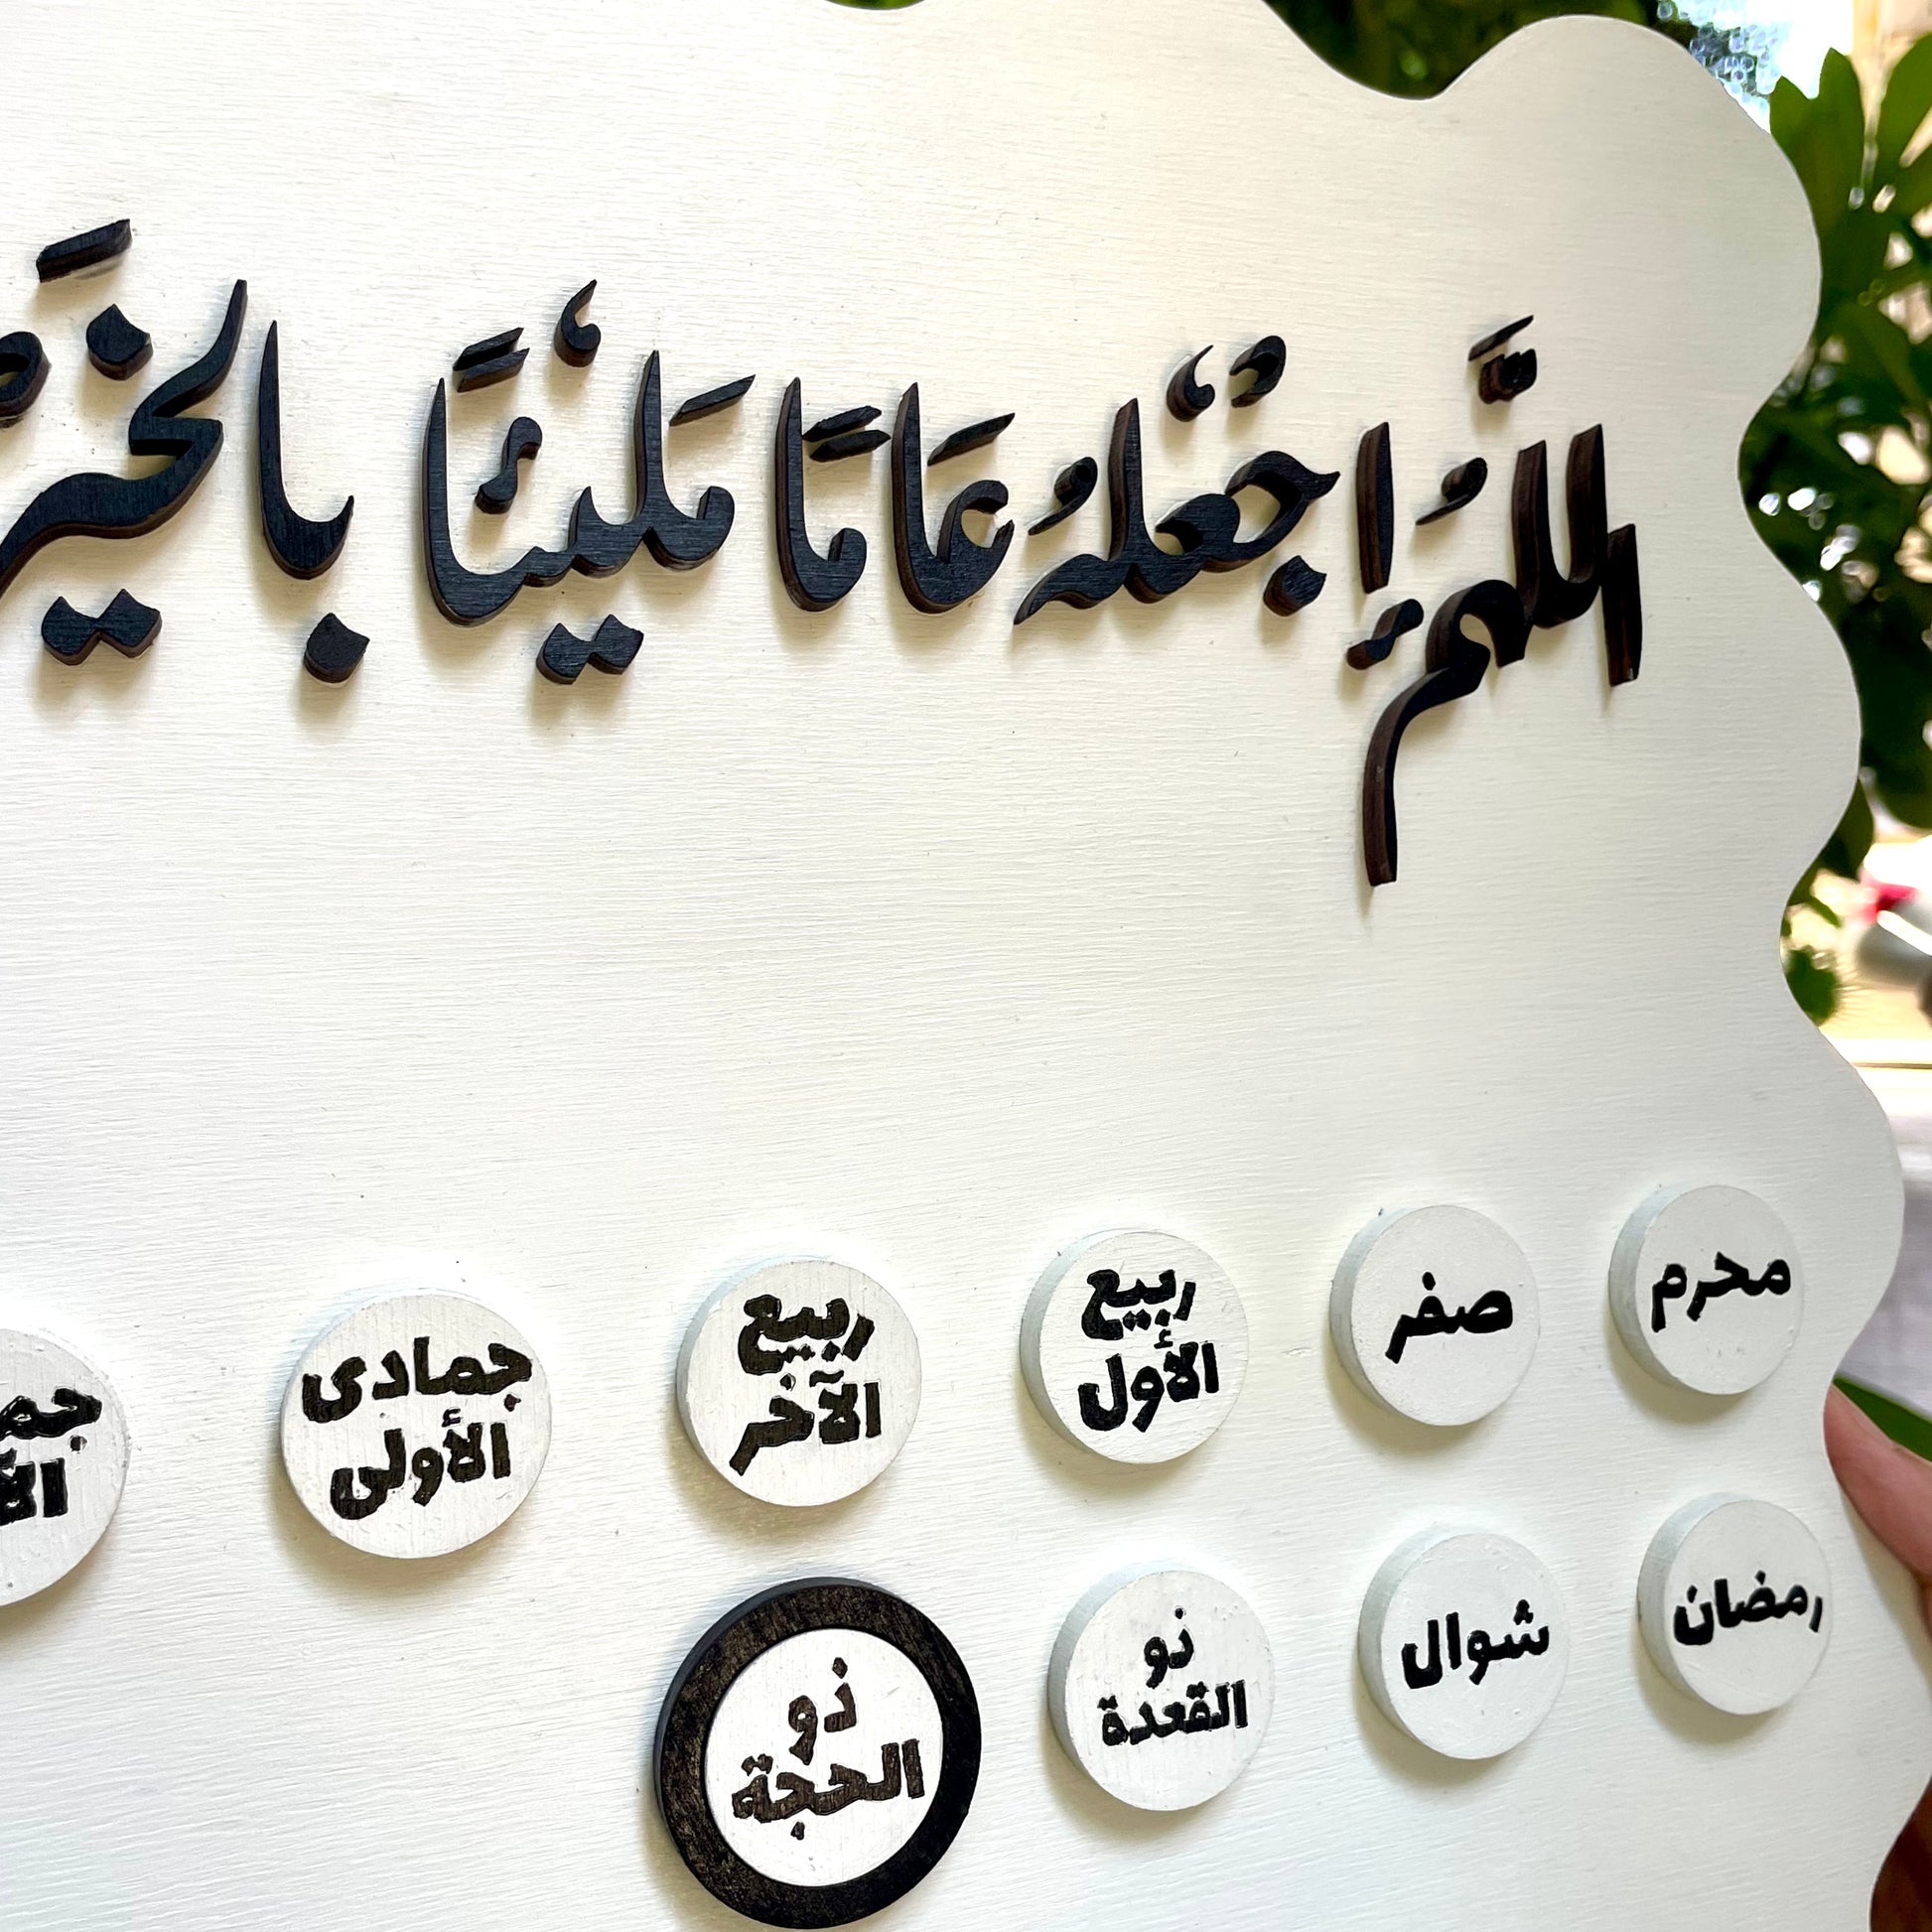 اللَّهُمَّ اجْعَلْهُ عَامًا مَلِيْئًا بالخَيْر
محرم
صفر
ربيع
الأول
ربيع
الآخر
جمادى
الأولى
رمضان
شوال
ذو
القعدة
ذو
الحجة